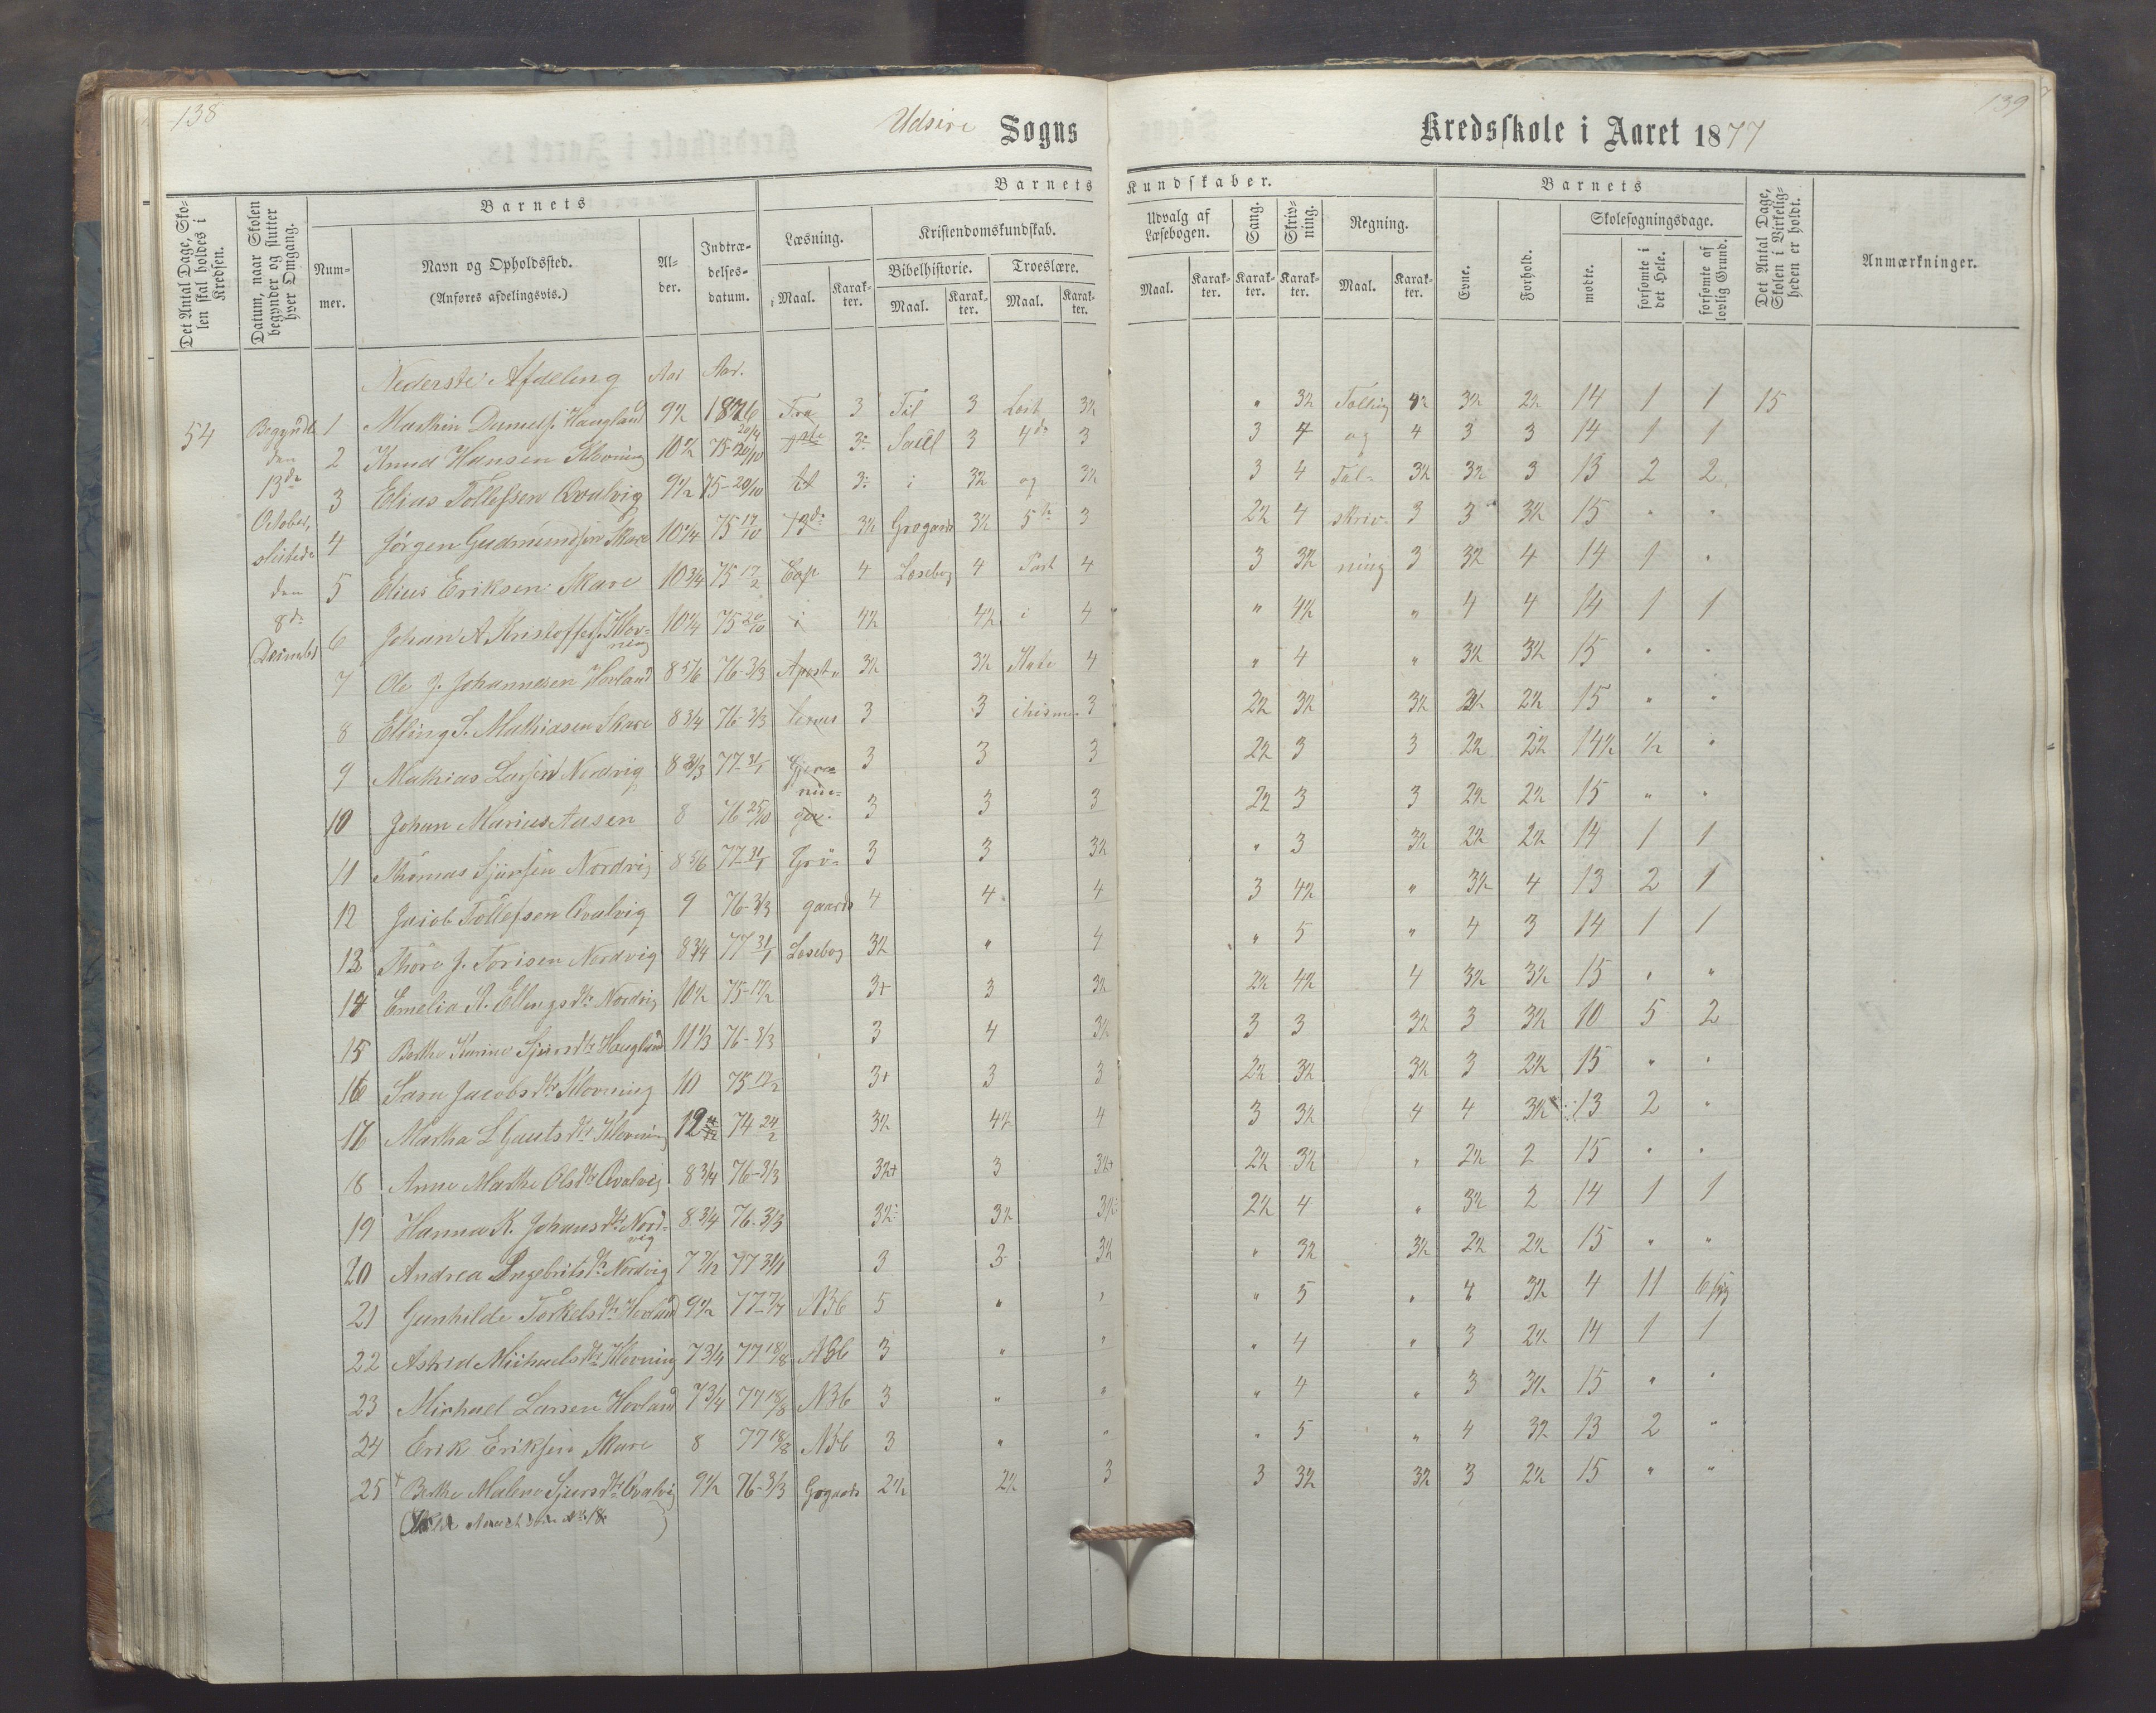 138
139
Udsire Sogns
Kredsskole i Aaret 1877
Det Antal Dage, Skolen skal holdes i Kredsen.
Datum, naar Skolen begynder og slutter hver Omgang.
Barnets
Nummer.
Navn og Opholdssted.
(Anføres afdelingsvis.)
Alder.
Indtrædelsesdatum.
Barnets
Læsning.
Maal.
Karakter.
Kristendomskundskab.
Bibelhistorie.
Maal.
Karakter.
Troeslære.
Maal.
Karakter.
Kundskaber.
Udvalg af Læsebogen.
Maal.
Karakter.
Sang.
Karakter.
Skrivning.
Karakter.
Regning.
Maal.
Karakter.
Barnets
Evne.
Forhold.
Skolesøgningsdage.
mødte.
forsømte i det Hele.
forsømte af lovlig Grund.
Det Antal Dage, Skolen i Virkeligheden er holdt.
Anmærkninger.
Nederste Afdeling Aar Aar.
54 Begyndte den 13de October, sluttede den 8de December
1 Haugland 9½ 1876 Fra 3 Til 3 3½ " 3½ 4½ 3½ 2½ 14 1 1 15
2 Knud Hansen Klovning 10½ 3 Saul 3 4de 3 3 4 og 4 3 3 14 1 1
3 Elias Tollefsen Qvalvig 9½ 75-20/10 i 3½ og 3½ 3 4 Tal- 3½ 3½ 3 13 2 2
4 Jørgen Gudmundsen Skare 10¼ 75 3½ 3½ 5te 3 2½ 4 skriv- 3 3 3½ 15 " "
5 Elius Eriksen Skare 10¾ 75 17/2 4 Læsebog 4 Part 4 3 3½ ning 3 3½ 4 14 1 "
6 Johan A. Kristoffers. Klovning 10¼ 75 20/10 i 4½ 4½ i 4 " 4½ " 4 4 14 1 1
7 Ole J. Johannesen Hovland 8 5/6 76-3/3 3½ 3½ Kate 4 " 4 " 3½ 3½ 15 " "
8 Elling S. Mathiasen Skare 8¾ 76-3/3 3 3 3 2½ 3½ 3½ 2½ 15 " "
9 Mathias Larsen Nordvig 77-31/1 3 3 3 2½ 3 3 2½ 2½ 14½ ½ "
10 Johan Marius Aasen 8 76 25/10 3 3 3 2½ 3 3 2½ 2½ 15 " "
11 Thomas Sjursen Nordvig 8 5/6 77-31/1 Grø- 3 3 3½ " 3 3½ 2½ 2½ 14 1 1
12 Jacob Tollefsen Qvalvig 9 76-3/3 gaards 4 4 4 3 4½ " 3½ 4 13 2 1
13 Thore J. Torisen Nordvig 8¾ 77 31/1 Læsebog 3½ " 4 " 5 " 4 3 14 1 1
14 Emelia A. Ellingsdtr Nordvig 10½ 75-17/2 3+ 3 3½ 2½ 4½ 4 3½ 3½ 15 " "
15 Berthe Karine Sjursdtr Haugland 11⅓ 76-3/3 3 4 3½ 3 3 3½ 3 3½ 10 5 2
16 Sara Jacobsdtr Klovning 10 75 17/2 3+ 3 3 2½ 3½ 3½ 3 2½ 15 " "
Martha L. Gautsdtr Klovning 74 24/2 3½ 4½ 4 3 3½ 4 4 3½ 13 2 "
18 Anne Marthe Olsdtr Qvalvig 8¾ 76-3/3 3½+ 3 3½+ 2½ 3½ " 2½ 2 15 " "
19 Hanna K. Johansdtr Nordvig 8¾ 76-3/3 3½ 3½ 3½ 2½ 4 " 3½ 2 14 1 1
20 Andrea Ingebritsdtr Nordvig 77 31/1 3 3 3½ " 3½ 3½ 2½ 2½ 15 " "
21 Gunhilde Torkelsdtr Hovland 9½ Nsb 5 " " " 5 " 4 3½ 4 11
22 Astrid Michaelsdtr Klovning 7¾ 77 18/8 Nsb 3 " " " 4 " 3 2½ 14 1 1
23 Michael Larsen Hovland 7¾ 77 18/8 Nsb 3 " " " 4 " 3 3½ 15 " "
24 Erik Eriksen Skare 8 77 18/8 Nsb 3 " " " 5 " 4 3½ 13 2 "
25 Berthe Malene Sjursdtr Qvalvig 9½ 76-3/3 2½ 2½ 3 3 3½ 3½ 3 2½ 15 " "